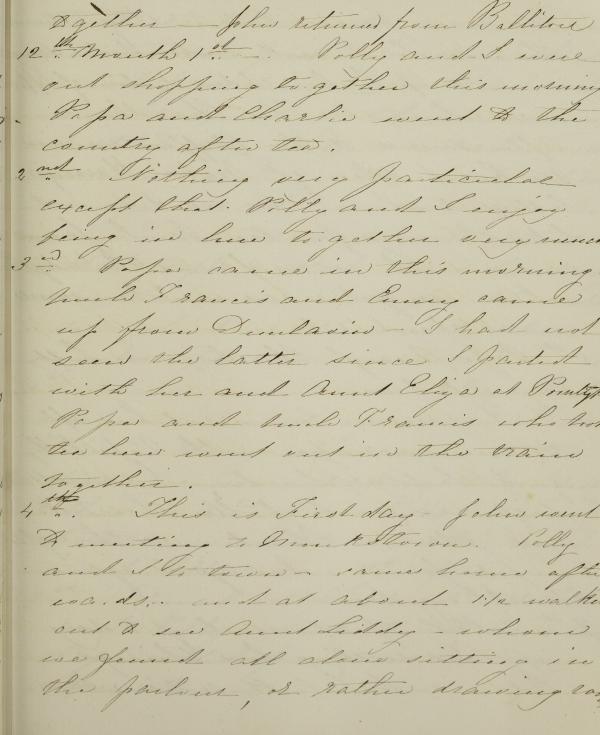 together — John returned from Ballitore
12th Month 1st. Polly and I were
out shopping together this morning
Papa and Charlie went to the
country after tea.
2nd Nothing very particular
except that Polly and I enjoy
being in here together very much
3rd Papa came in this morning
Uncle Francis and Emmy came
up from Dunlavin - I had not
seen the latter since I parted
with her and Aunt Eliza at
Papa and Uncle Francis who had
tea here went out in the train
together.
4th. This is First day - John went
to meeting to Monkstown. Polly
and I to town - came home after
wards.. and at about 1 1/2 walked
out to see Aunt Liddy - whom
we found all alone sitting in
the parlour, or rather drawing room